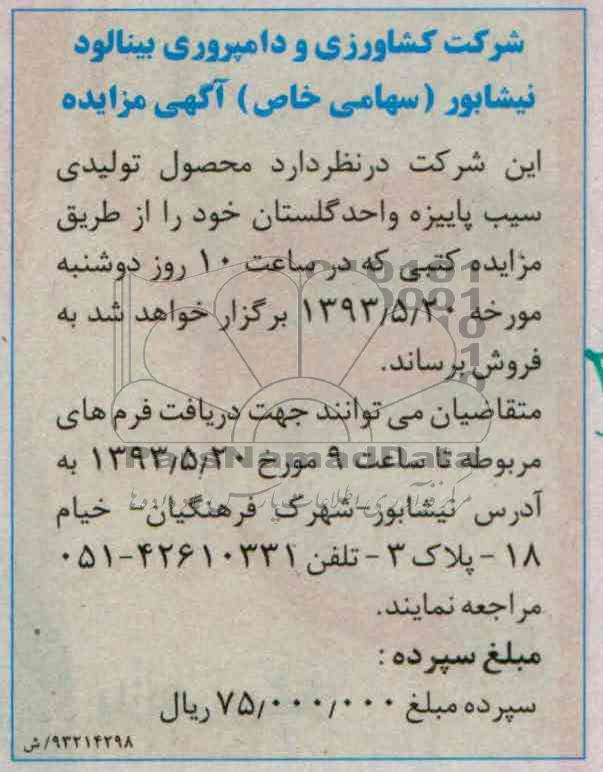 شرکت کشاورزی و دامپروری بینالود
نیشابور (سهامی خاص) آگهی مزایده
این شرکت درنظردارد محصول تولیدی
سیب پاییزه واحدگلستان خود را از طریق
مزایده کتبی که در ساعت ۱۰ روز دوشنبه
مورخه ۱۳۹۳/۵/۲۰ برگزار خواهد شد به
فروش برساند.
متقاضیان می توانند جهت دریافت فرم های
مربوطه تا ساعت ۹ مورخ ۱۳۹۳/۵/۲۰ به
آدرس نیشابور-شهرک فرهنگیان- خیام
۱۸ - پلاک ۳ - تلفن ۴۲۶۱۰۳۳۱-۰۵۱
مراجعه نمایند.
مبلغ سپرده :
سپرده مبلغ ۷۵/۰۰۰/۰۰۰ ریال
۹۳۲۱۴۲۹۸/ش
ParsNamadData